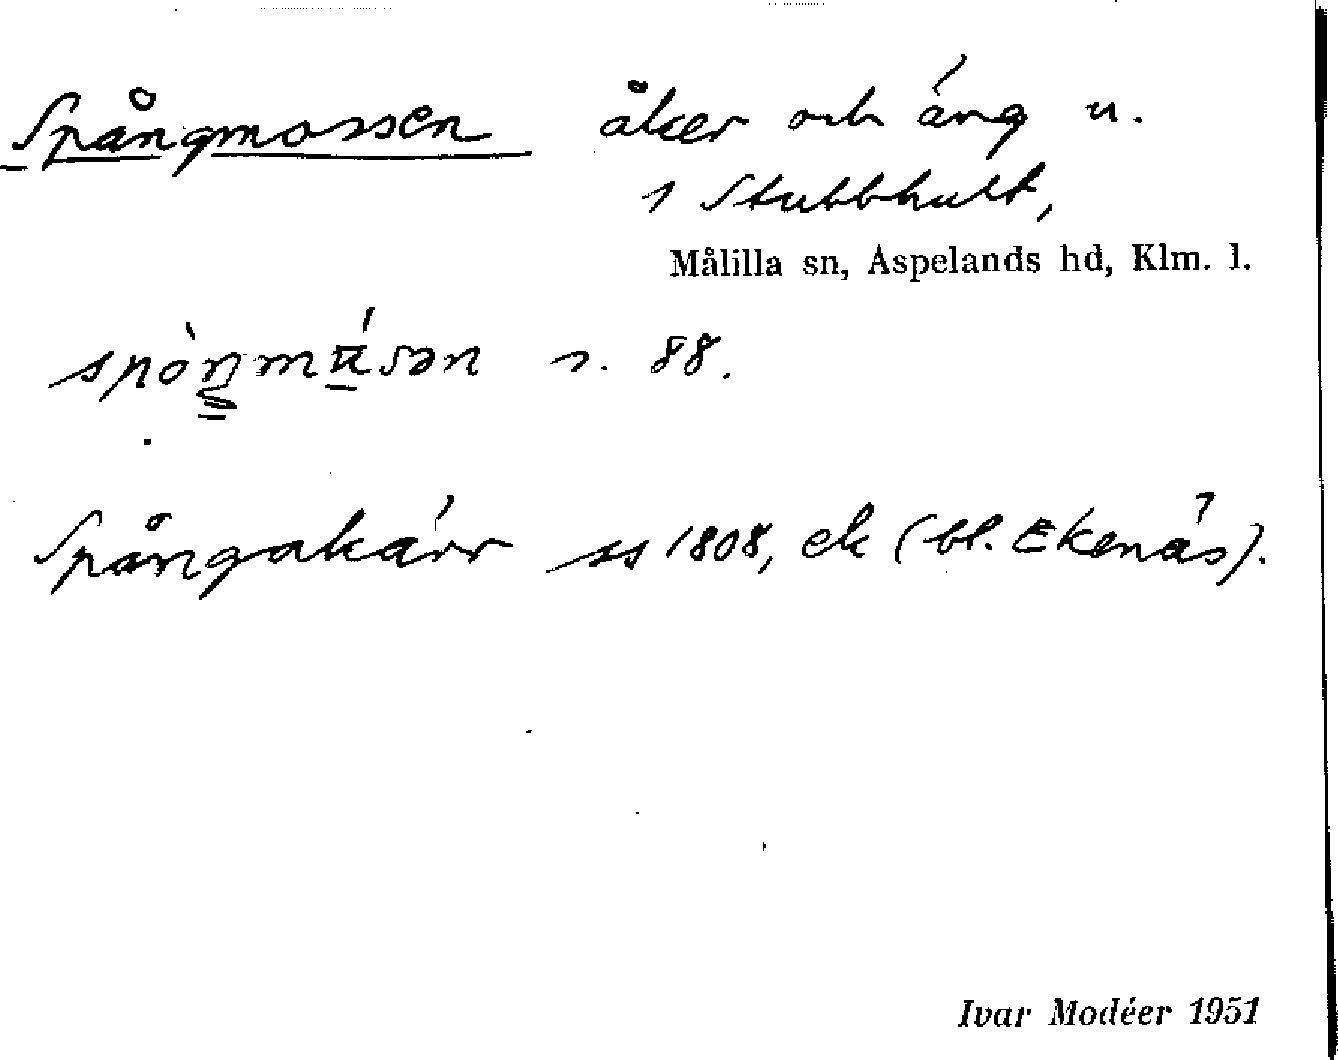 Spångmossen åker och äng u.
1 Stubbhult,
Målilla sn, Aspelands hd, Klm. l.
s. 88.
Spångakärr ss 1808, ek (bl. Ekenäs).
Ivar Modéer 1951